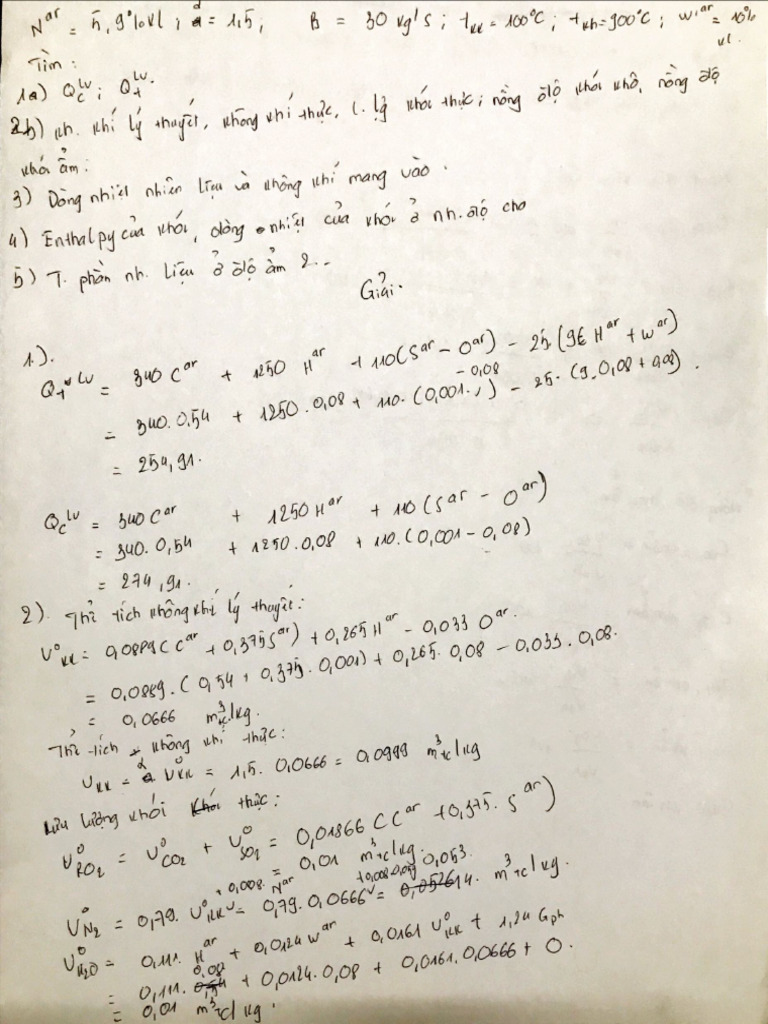 N^ar = 5,9% kl ; α = 1,5 ; B = 30 kg/s ; t_kk = 100°C ; t_kh = 900°C ; W_1^ar = 10% kl.
Tìm :
1a) Q_c^lv ; Q_t^lv.
2b) kh. khí lý thuyết, không khí thực, l. lg khói thực ; nồng độ khói khô, nồng độ
khói ẩm :
3) Dòng nhiệt nhiên liệu và không khí mang vào .
4) Enthalpy của khói, dòng nhiệt của khói ở nh. độ cho
5) T. phần nh. liệu ở độ ẩm 2 . .
Giải .
1.).
Q_t^lv = 340 C^ar + 1250 H^ar + 110 (S^ar - O^ar) - 25. (9 H^ar + W^ar)
= 340. 0,54 + 1250 . 0,08 + 110. (0,001 - 0,08) - 25. (9. 0,08 + 0,08) .
= 254,91.
Q_c^lv = 340 C^ar + 1250 H^ar + 110 (S^ar - O^ar)
= 340. 0,54 + 1250. 0,08 + 110. (0,001 - 0,08)
= 274,91.
2). Thể tích không khí lý thuyết :
V°_kk = 0,0889 (C^ar + 0,375 S^ar) + 0,265 H^ar - 0,033 O^ar.
= 0,0889. (0,54 + 0,375. 0,001) + 0,265. 0,08 - 0,033. 0,08.
= 0,0666 m³tc/kg.
Thể tích không khí thực :
V_kk = α V°_kk = 1,5. 0,0666 = 0,0999 m³tc/kg
Lưu lượng khói thực :
V°_RO2 = V°_CO2 + V°_SO2 = 0,01866 (C^ar + 0,375. S^ar)
= 0,01 m³tc/kg.
V°_N2 = 0,79. V°_kk + 0,008. N^ar = 0,79. 0,0666 = 0,053 m³tc/kg.
V°_H2O = 0,111. H^ar + 0,0124 W^ar + 0,0161 V°_kk + 1,24 G_ph
= 0,111. 0,08 + 0,0124. 0,08 + 0,0161. 0,0666 + 0 .
= 0,01 m³tc/kg .